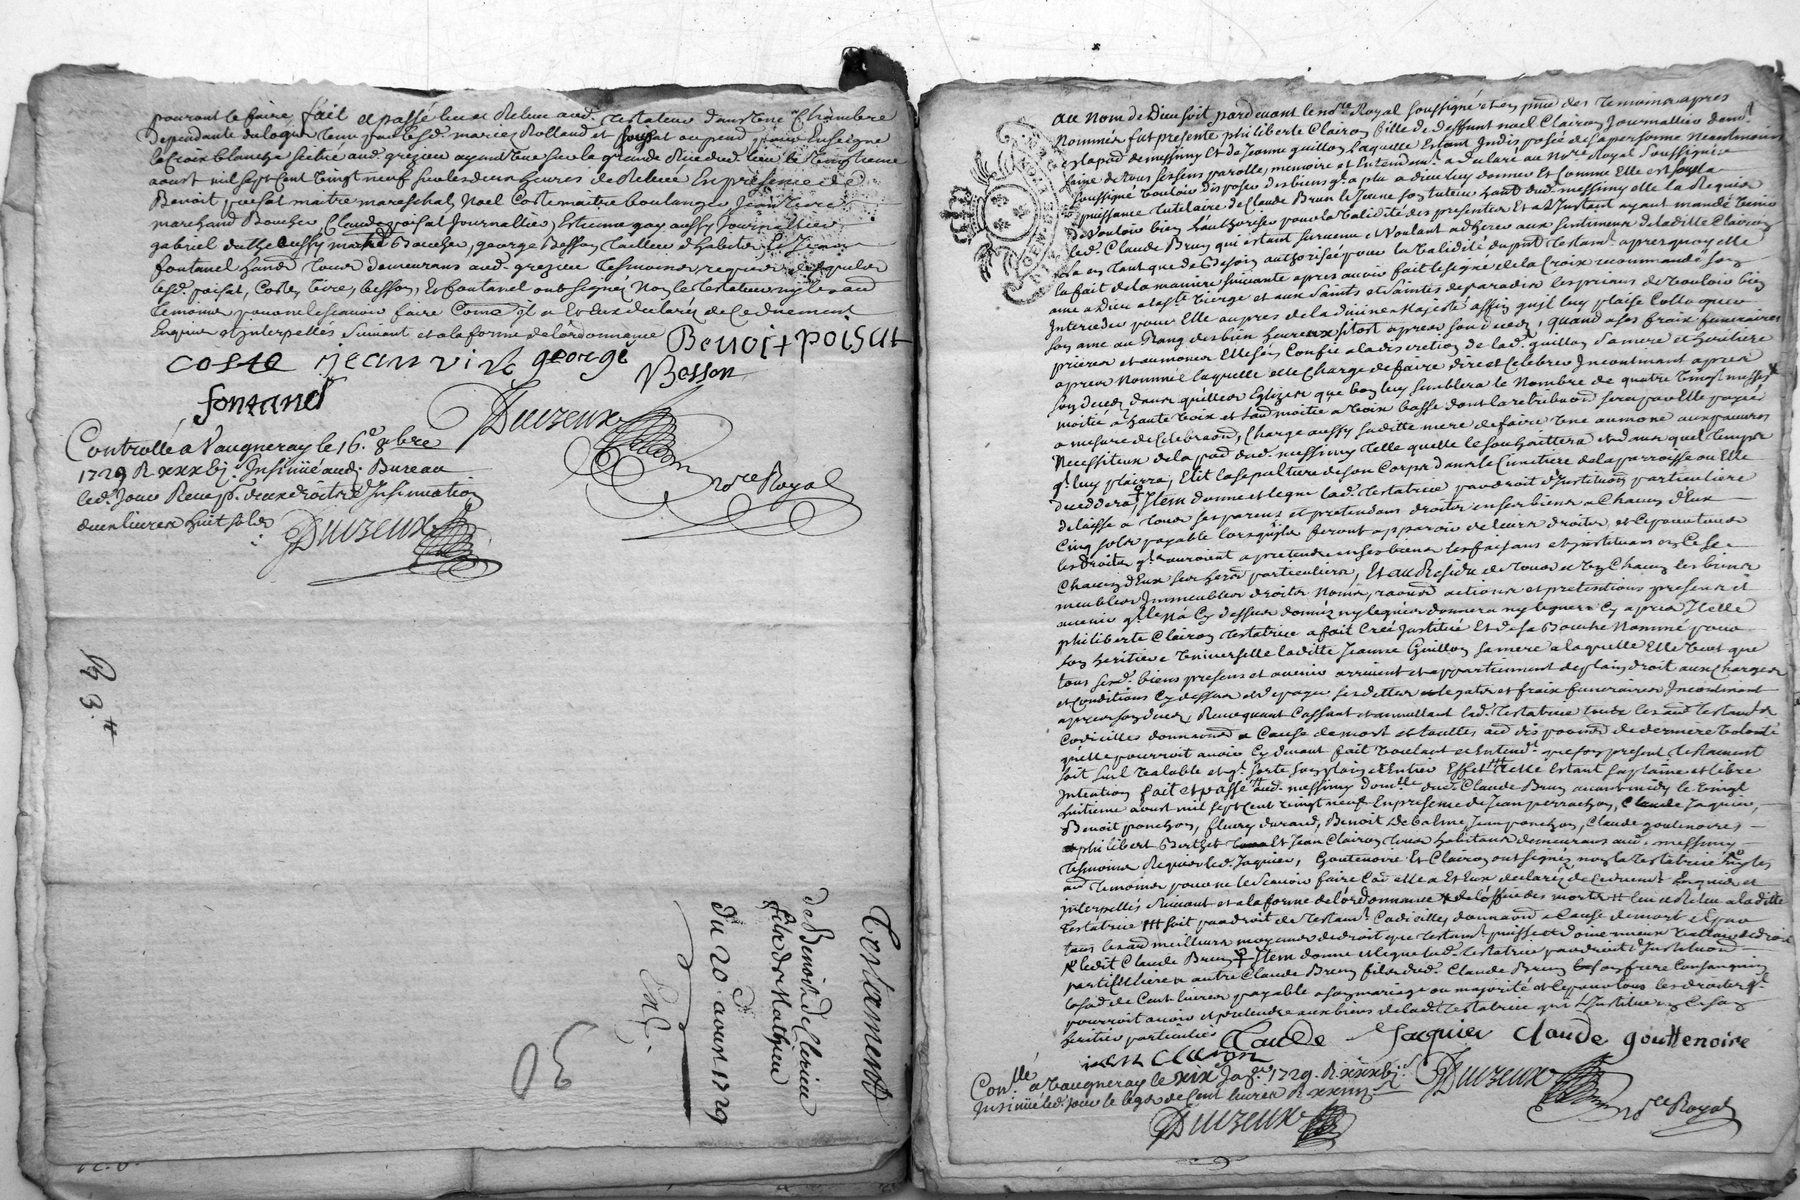 pouront le faire fait et passé leu et Releu aud. testateur dans une Chambre
Dependante du logis tenu par le Sr. maries Rolland et ou pend pour Enseigne
la Croix blanche scitué aud. grezieu ayant veüe sur la grande Rüe dud. lieu le vingtieme
aoust mil sept Cent vingt neuf sur les deux heures de Relevée En presence de
Benoit poisat maitre mareschal, Noel Coste maitre boulanger Jean vire
marchand Boucher Claude poisat Journallier, Estienne gay aussy Journallier
gabriel aussy Boucher, george Besson tailleur d'habits, et Jean
fontanel tous demeurans aud. grezieu tesmoins requis desquels
lesd. poisat, Coste, vire, besson, et fontanel ont signez Non le testateur ny les aud
temoins pour ne le scavoir faire Come il a et Eux declarez de Ce düement
Enquis et Interpellés suivant et a la forme de l'ordonnance
Benoit poisat
coste jean vire george
Besson
fontanel
Duvzeux
nore Royal
Controllé a Vaugneray le 16e 8bre
1729 R xxxbj. Insinüé aud. Bureau
led. Jour Receu pr. deux droits d'Insinuation
deux livres huit sols
Duvzeux
R 3 tt
Testament
de Benoit de
fils de Mathieu
Du 20 aoust 1729
30
au nom de Dieu soit pardevant le nore Royal soussigné et en pnce des temoins apres
Nommés fut presente philiberte Clairon fille de deffunt noel Clairon Journallier dem.
en la pad de messimy et de Jeanne guillon laquelle Estant Indisposée de sa personne Neantmoins
saine de tous ses sens parolle, memoire et Entendemt. a declaré au Nore Royal soussigné
vouloir disposer des biens ql. a plu a dieu luy donner et Comme Elle est sous la
puissance tutelaire de Claude Brun le Jeune son tuteur dud. messimy elle la Requis
de vouloir bien L'authoriser pour la validité des presentes Et a l'Instant ayant mandé venir
led. Claude Brun qui estant survenu et voulant adherer aux sentimens de laditte Clairon
la en tant que de besoin authorisée pour la validité du pnt testamt. apres quoy elle
la fait de la maniere suivante apres avoir fait le signe de la Croix recommandé son
ame a Dieu a la ste vierge et aux saints et saintes de paradis les priant de vouloir bien
Interceder pour Elle aupres de la divine Majesté affin qu'il luy plaise Colloquer
son ame au Rang des bien heureux sitost apres son deces, quand a ses fraix funeraires
prieres et aumones Elle s'en Confie a la discretion de lad. guillon sa mere et heritiere
apres Nommée laquelle elle Charge de faire dire et Celebrer Incontinant apres
son deces dans quelles Eglises que bon luy semblera le Nombre de quatre vingt messes
moitié a haute voix et laud moitié a voix basse dont la retribuõn sera par Elle payée
a mesure de Celebraõn, Charge aussy saditte mere de faire une aumone aux pauvres
Necessiteux de la pad dud. messimy telle quelle le souhaittera et dans quel temps
ql. luy plairra, Elit la sepulture de son Corps dans le Cimitiere de la parroisse ou Elle
deccedera, Item donne et legue lad. testatrice par droit d'Institution particuliere
delaisse a tous ses parens et pretendans droits en ses biens a Chacun d'Eux
Cinq sols payable lorsquils seront apparoir de leurs droits, et Ce pour tous
les droits ql. auroient a pretendre en ses biens les faisans et instituans en Ce Ses
Chacun d'Eux ses heres particuliers, Et au Residu de tous et un Chacun les biens
meubles Immeubles droits Noms, raisons actions et pretentions presens et
avenir ql. na Cy dessus donnés ny legués donnera ny leguera Cy apres Icelle
philiberte Clairon testatrice a fait Creé Institué Et de sa Bouche Nommé pour
son heritiere universelle laditte Jeanne Guillon sa mere a laquelle Elle veut que
tous sesd. biens presens et avenir arrivent et appartiennent de plain droit aux Charges
et Conditions Cy dessus et de payer ses dettes et legats et fraix funeraires Incontinant
apres son deces, Revocquant Cassant et annullant lad. testatrice tous les aud testamts.
Codicilles donnaõns a Cause de mort et touttes aud dispoõns de derniere volonté
quelle pourroit avoir Cy devant fait voulant et Entendt. que son present testament
soit seul valable et ql. sorte son plein et Entier Effet telle Estant sa plaine et libre
Intention fait et passé aud. messimy domlle dud. Claude Brun avant midy le vingt
huitieme aoust mil sept Cent vingt neuf En presence de Jean perrachon, Claude Jaquier,
Benoit ponchon, fleury durand, Benoit Debalme, Jean ponchon, Claude goutenoires
philibert Berthet et Jean Clairon tous habitans demeurans aud. messimy
tesmoins Requis led. Jaquier, Goutenoire Et Clairon ont signez non la testatrice ny les
aud temoins pour ne le scavoir faire Coe elle a Et Eux declarez de Ce düemt. Enquis et
interpellés suivant et a la forme de l'ordonnance de l'office des morts leu et Releu a laditte
testatrice soit par droit de testamt. Codicilles donnaõn a Cause de mort et par
tous les aud meilleurs moyens de droit que testamt. puisse et doive mieux valloir de droit
ledit Claude Brun Item donne et legue lad. testatrice par droit d'Instituõn
particuliere a autre Claude Brun fils dud. Claude Brun son frere Consanguin
la so. de Cent livres payable a son mariage ou majorité et Ce pour tous les droits ql.
pourroit avoir et pretendre aux biens de lad. testatrice qui L'Institue en Ce son
heritier particulier
Claude Jaquier claude gouttenoire
jean claron
Duvzeux
nore Royal
Conllé a Vaugneray le xixe 1729. R xxxbj s.
Insinüé led. Jour le legs de Cent livres R
Duvzeux